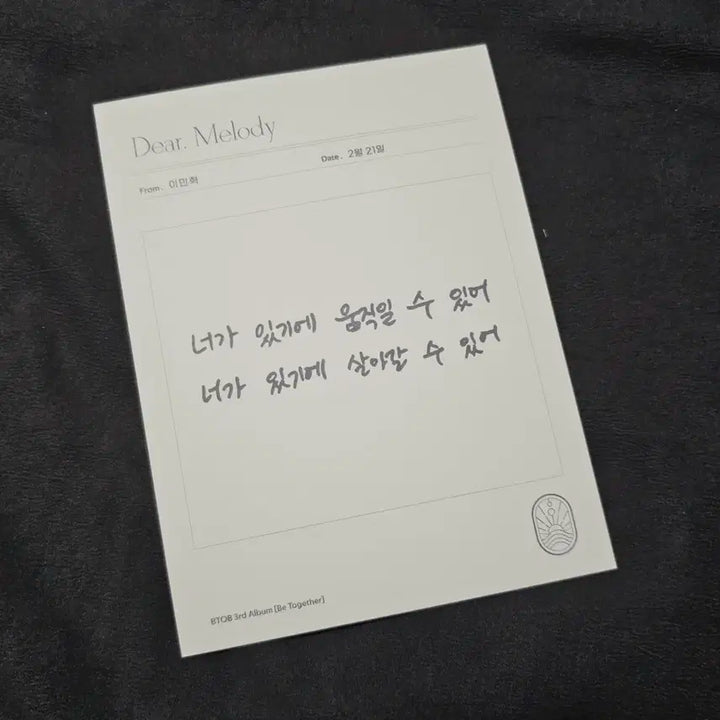 Dear. Melody
From. 이민혁
Date. 2월 21일
너가 있기에 움직일 수 있어
너가 있기에 살아갈 수 있어
BTOB 3rd Album [Be Together]